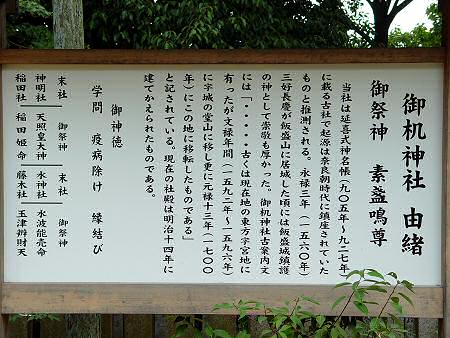 御机神社 由緒
御祭神 素盞鳴尊
当社は延喜式神名帳（九〇五年〜九二七年）
に載る古社で起源は奈良朝時代に鎮座されていた
ものと推測される。永禄三年（一五六〇年）
三好長慶が飯盛山に居城した頃には飯盛城鎮護
の神として崇敬も厚かった。御机神社古案内文
には「・・・・・古くは現在地の東方字宮地に
有ったが文禄年間（一五九二年〜一五九六年）
に字城の堂山に移し更に元禄十三年（一七〇〇
年）にこの地に移転したものである」
と記されている。現在の社殿は明治十四年に
建てかえられたものである。
御神徳
学問 疫病除け 縁結び
末社 御祭神 末社 御祭神
神明社 天照皇大神 水神社 水波能売命
稲田社 稲田姫命 藤木社 玉津辯財天